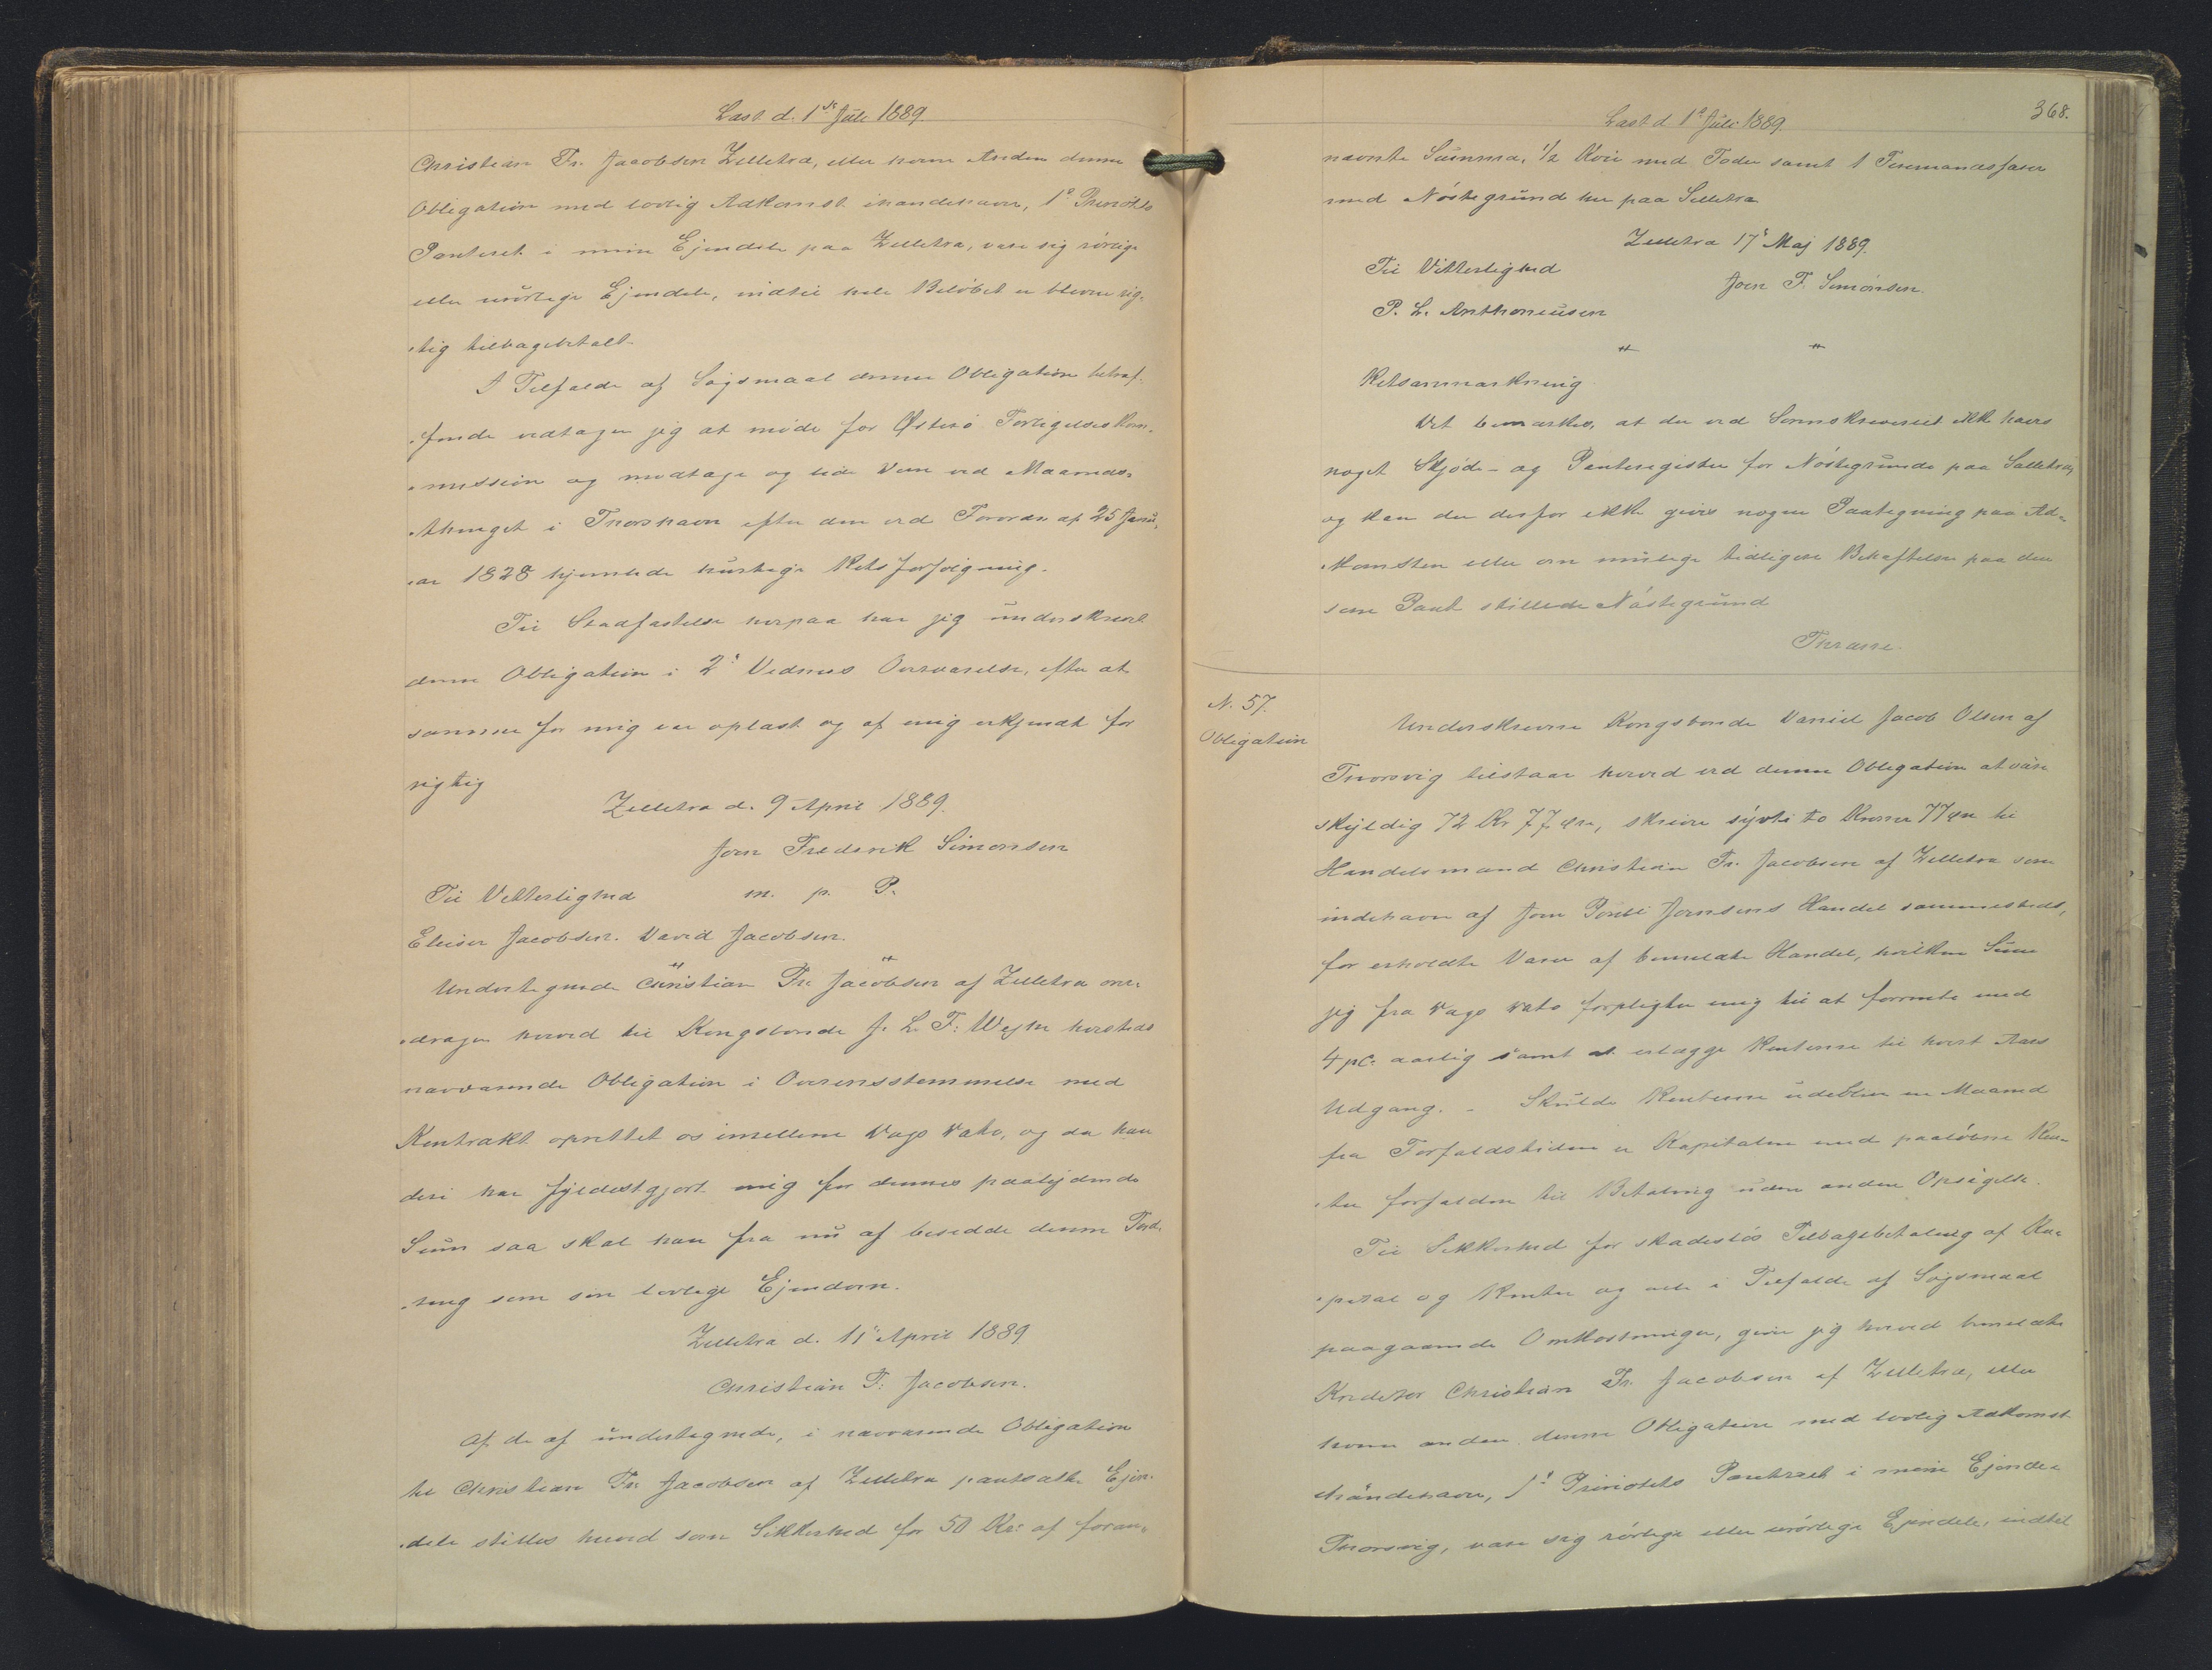 Læst d. 1ste Juli 1889.
Christian Fr. Jacobsen Zelletræ, eller hvem Anden denne
Obligation med lovlig Adkomst ihændehaver, 1e Prioritets
Panteret i mine Ejendele paa Zelletræ, være sig rörlige
eller urörlige Ejendele, indtil hele Belöbet er bleven rig¬
tig tilbagebetalt.
I Tilfælde af Sögsmaal denne Obligation betræf¬
fende vedtager jeg at möde for Österö Forligelseskom¬
mission og modtage og lide Dom ved Maaneds¬
thinget i Thorshavn efter den ved Forordn. af 25 Janu¬
ar 1828 hjemlede hurtige Retsforfölgning.
Til Stadfæstelse herpaa har jeg underskrevet
denne Obligation i 2de Vidners Overværelse, efter at
samme for mig var oplæst og af mig erkjendt for
rigtig
Zelletræ d. 9 April 1889.
Joen Frederik Simonsen
Til Vitterlighed m. p. P.
Elieser Jacobsen. David Jacobsen.
Undertegnede Christian Fr. Jacobsen af Zelletræ over¬
drager herved til Kongsbonde J. L. F. Weyhe hersteds
nærværende Obligation i Overensstemmelse med
Kontrakt oprettet os imellem Dags Dato, og da han
deri har fyldestgjort mig for dennes paalydende
Sum saa skal han fra nu af besidde denne Ford¬
ring som sin lovlige Ejendom.
Zelletræ d. 11e April 1889
Christian F. Jacobsen.
Af de af undertegnede, i nærværende Obligation
til Christian Fr. Jacobsen af Zelletræ pantsatte Ejen¬
dele stilles herved som Sikkerhed for 50 Kr. af foran¬
Læst d. 1e Juli 1889.
368.
nævnte Summa, 1/2 Koie med Foder samt 1 Firemandsfarer
med Nöstegrund her paa Selletræ
Zelletræ 17e Maj 1889.
Til Vitterlighed
Joen F. Simonsen.
P. L. Anthoniusen
Retsanmærkning.
Det bemærkes, at der ved Sorenskriveriet ikke haves
noget Skjöde- og Panteregister for Nöstegrunde paa Selletræ,
og kan der derfor ikke gives nogen Paategning paa Ad¬
komsten eller om mulige tidligere Behæftelser paa den
som Pant stillede Nöstegrund
Thrane.
N. 57.
Obligation
Underskrevne Kongsbonde Daniel Jacob Olsen af
Thorsvig tilstaar herved ved denne Obligation at være
skyldig 72 Kr 77 Øre, skriver sývti to Kroner 77 Øre til
Handelsmand Christian Fr. Jacobsen af Zelletræ som
indehaver af Joen Poul Joensens Handel sammesteds,
for erholdte Varer af bemeldte Handel, hvilken Sum
jeg fra Dags Dato forpligter mig til at forrente med
4 pC. aarlig samt at erlægge Renterne til hvert Aars
Udgang. - Skulde Renterne udeblive en Maaned
fra Forfaldstiden er Kapitalen med paalöbne Ren¬
ter forfalden til Betaling uden anden Opsigelse.
Til Sikkerhed for skadeslös Tilbagebetaling af Ka¬
pital og Renter og alle i Tilfælde af Sögsmaal
paagaaende Omkostninger, giver jeg herved bemeldte
Kreditor Christian Fr. Jacobsen af Zelletræ, eller
hvem anden denne Obligation med lovlig Adkomst
ihændehaver, 1e Prioritets Panteret i mine Ejendele
Thorsvig, være sig rörlige eller urörlige Ejendele, indtil